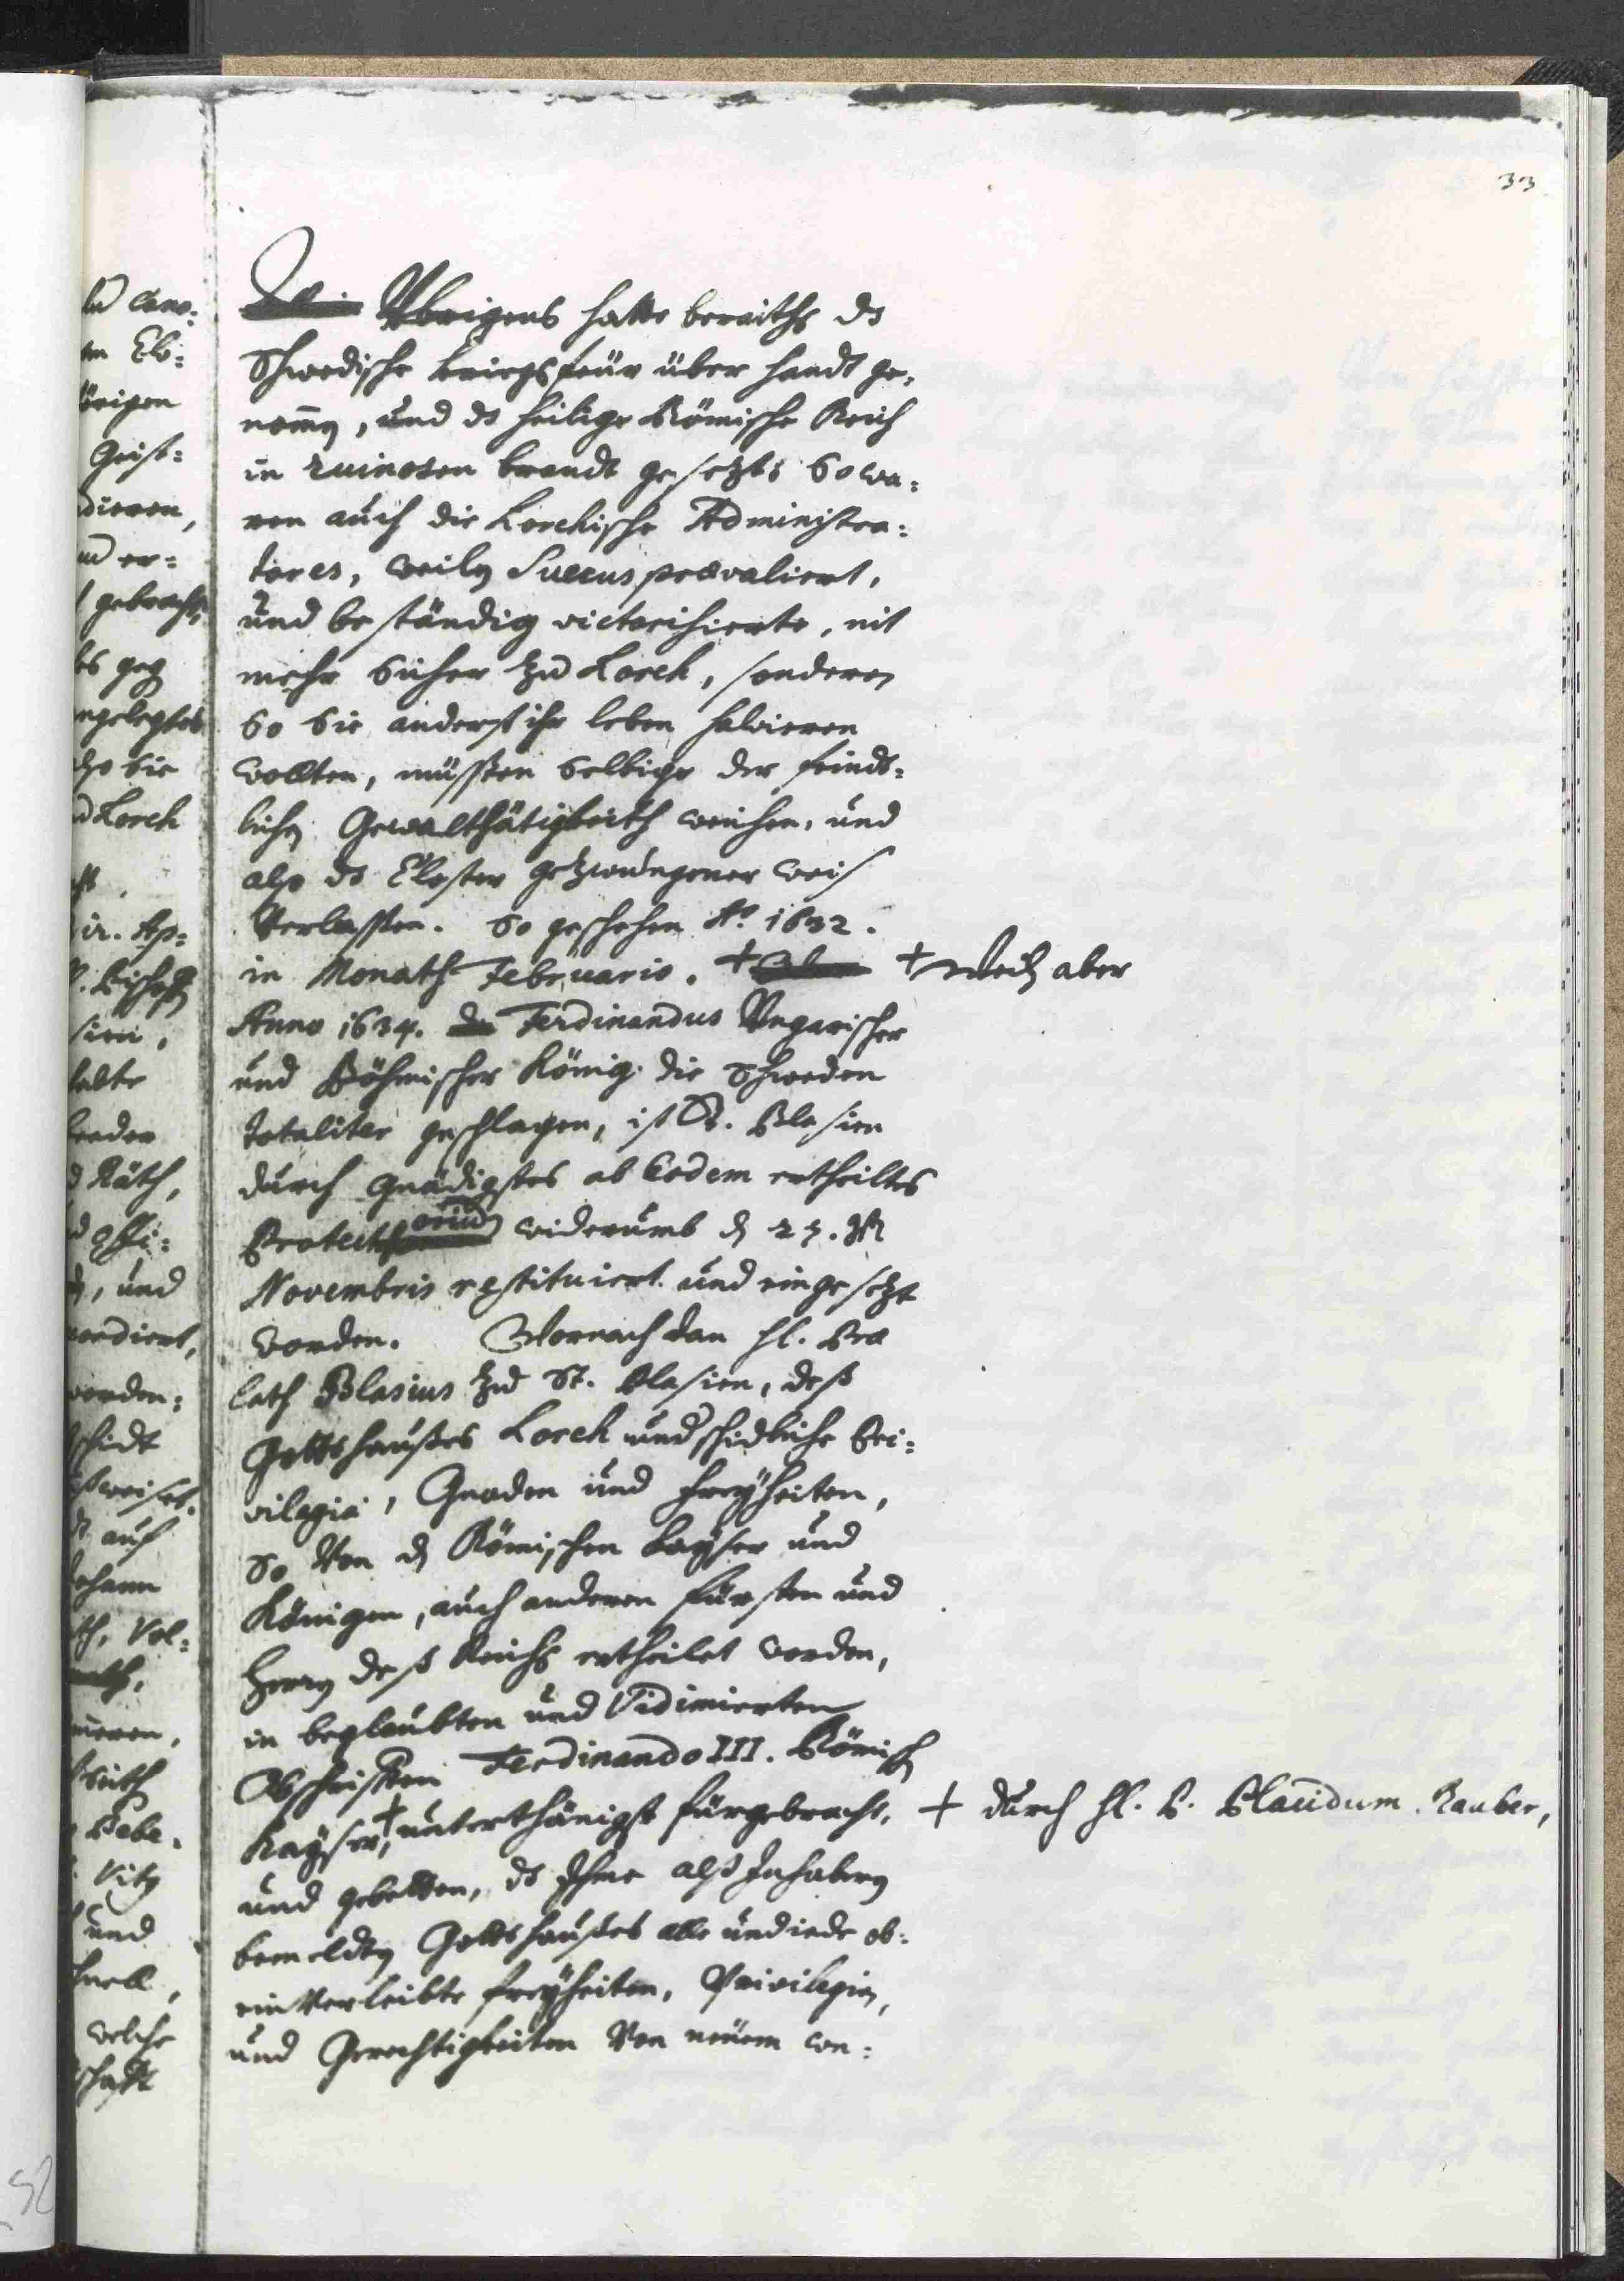 33
Übrigens hatte bereiths ds
Schwedische kriegsfeür über handt ge-
nom̄en, und ds heilige Römische Reich
in ruinosen brandt gesetzt: So wa:
ren auch die Lorchische Administra:
tores, weilen Suecus praevaliert,
und beständig victorisierte, nit
mehr sicher zu Lorch, sonderen
so sie anderst ihr leben salvieren
wollten, müssten selbige der feindt:
lichen Gewalthätigkeith weichen, und
also ds Closter gezwungener weis
Verlassen. So geschehen Aº. 1632.
in Monath Februario. + + weilen aber
Anno 1634. Ferdinandus Ungarischer
und Böhmischer König die Schweden
totaliter geschlagen, ist St. Blasien
durch gnädigstes ab Eodem ertheiltes
Protectorium widerumb den 27.
Novembris restituiert und eingesetzt
worden. Wornach dan H. Prae
lath Blasius zu St. Blasien, deß
Gottshaußes Lorch underschidliche Pri:
vilegia, Gnaden und Freyheiten,
so Von den Römischen Kayser und
Königen, auch anderen Fürsten und
Herren deß Reichs ertheilet worden,
in beglaubten und Vidimierten
Abschrifften Ferdinando III. Römischen
Kayser,+ unterthänigst fürgebracht, + durch H. P. Placidum Rauber,
und gebetten, ds Ihme alß Inhabern
bemeldten Gottshaußes alle und iede ob:
einverleibte Freyheiten, Privilegien,
und Gerechtigkeiten Von neüem con: